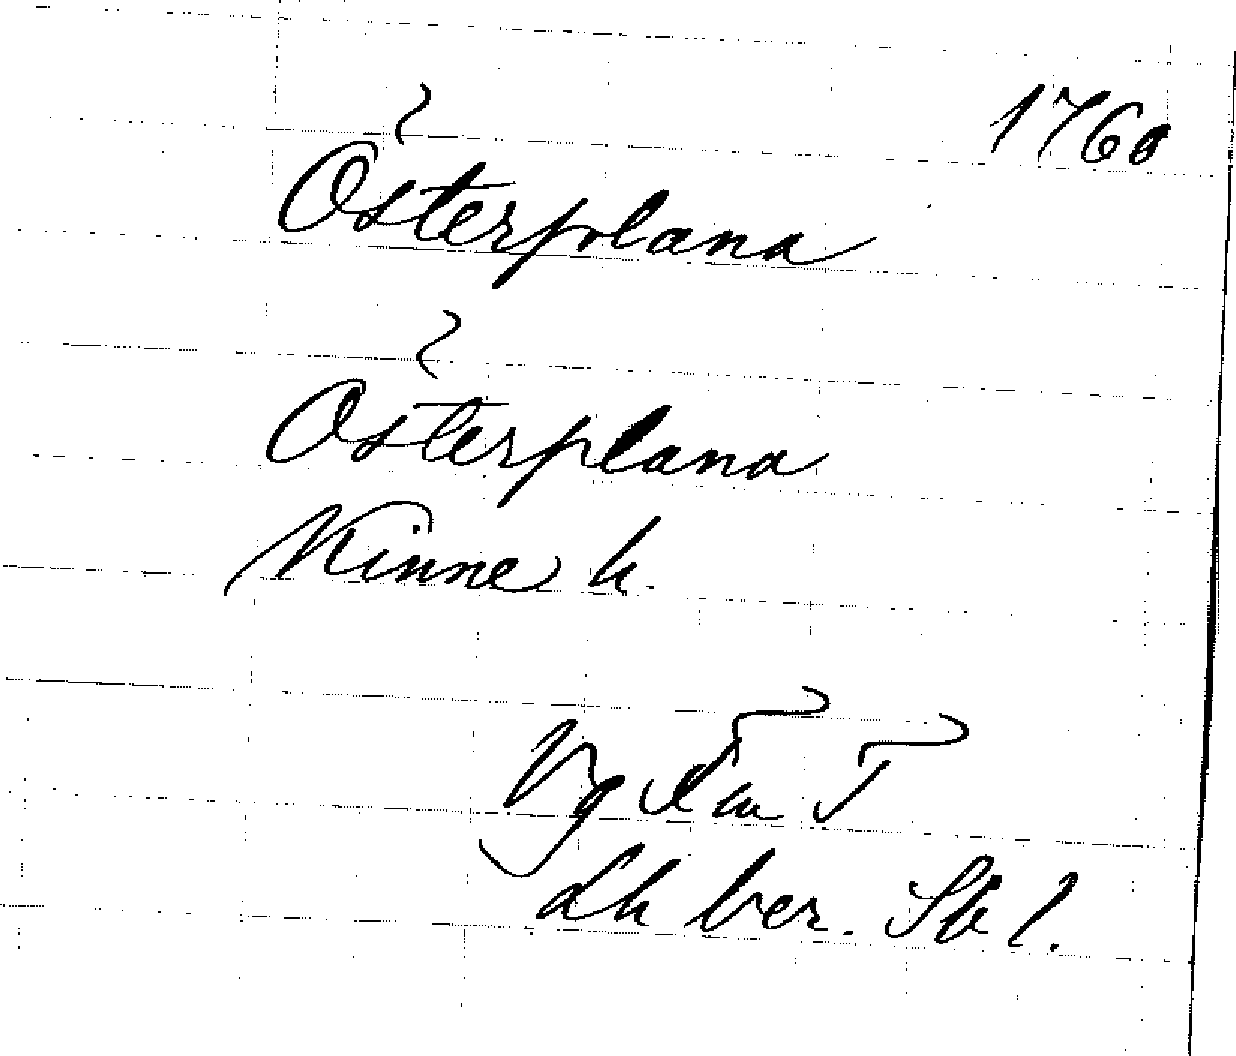 1760
Österplana
Österplana
Kinne h.
Vg
Lh ber. Sk 1.